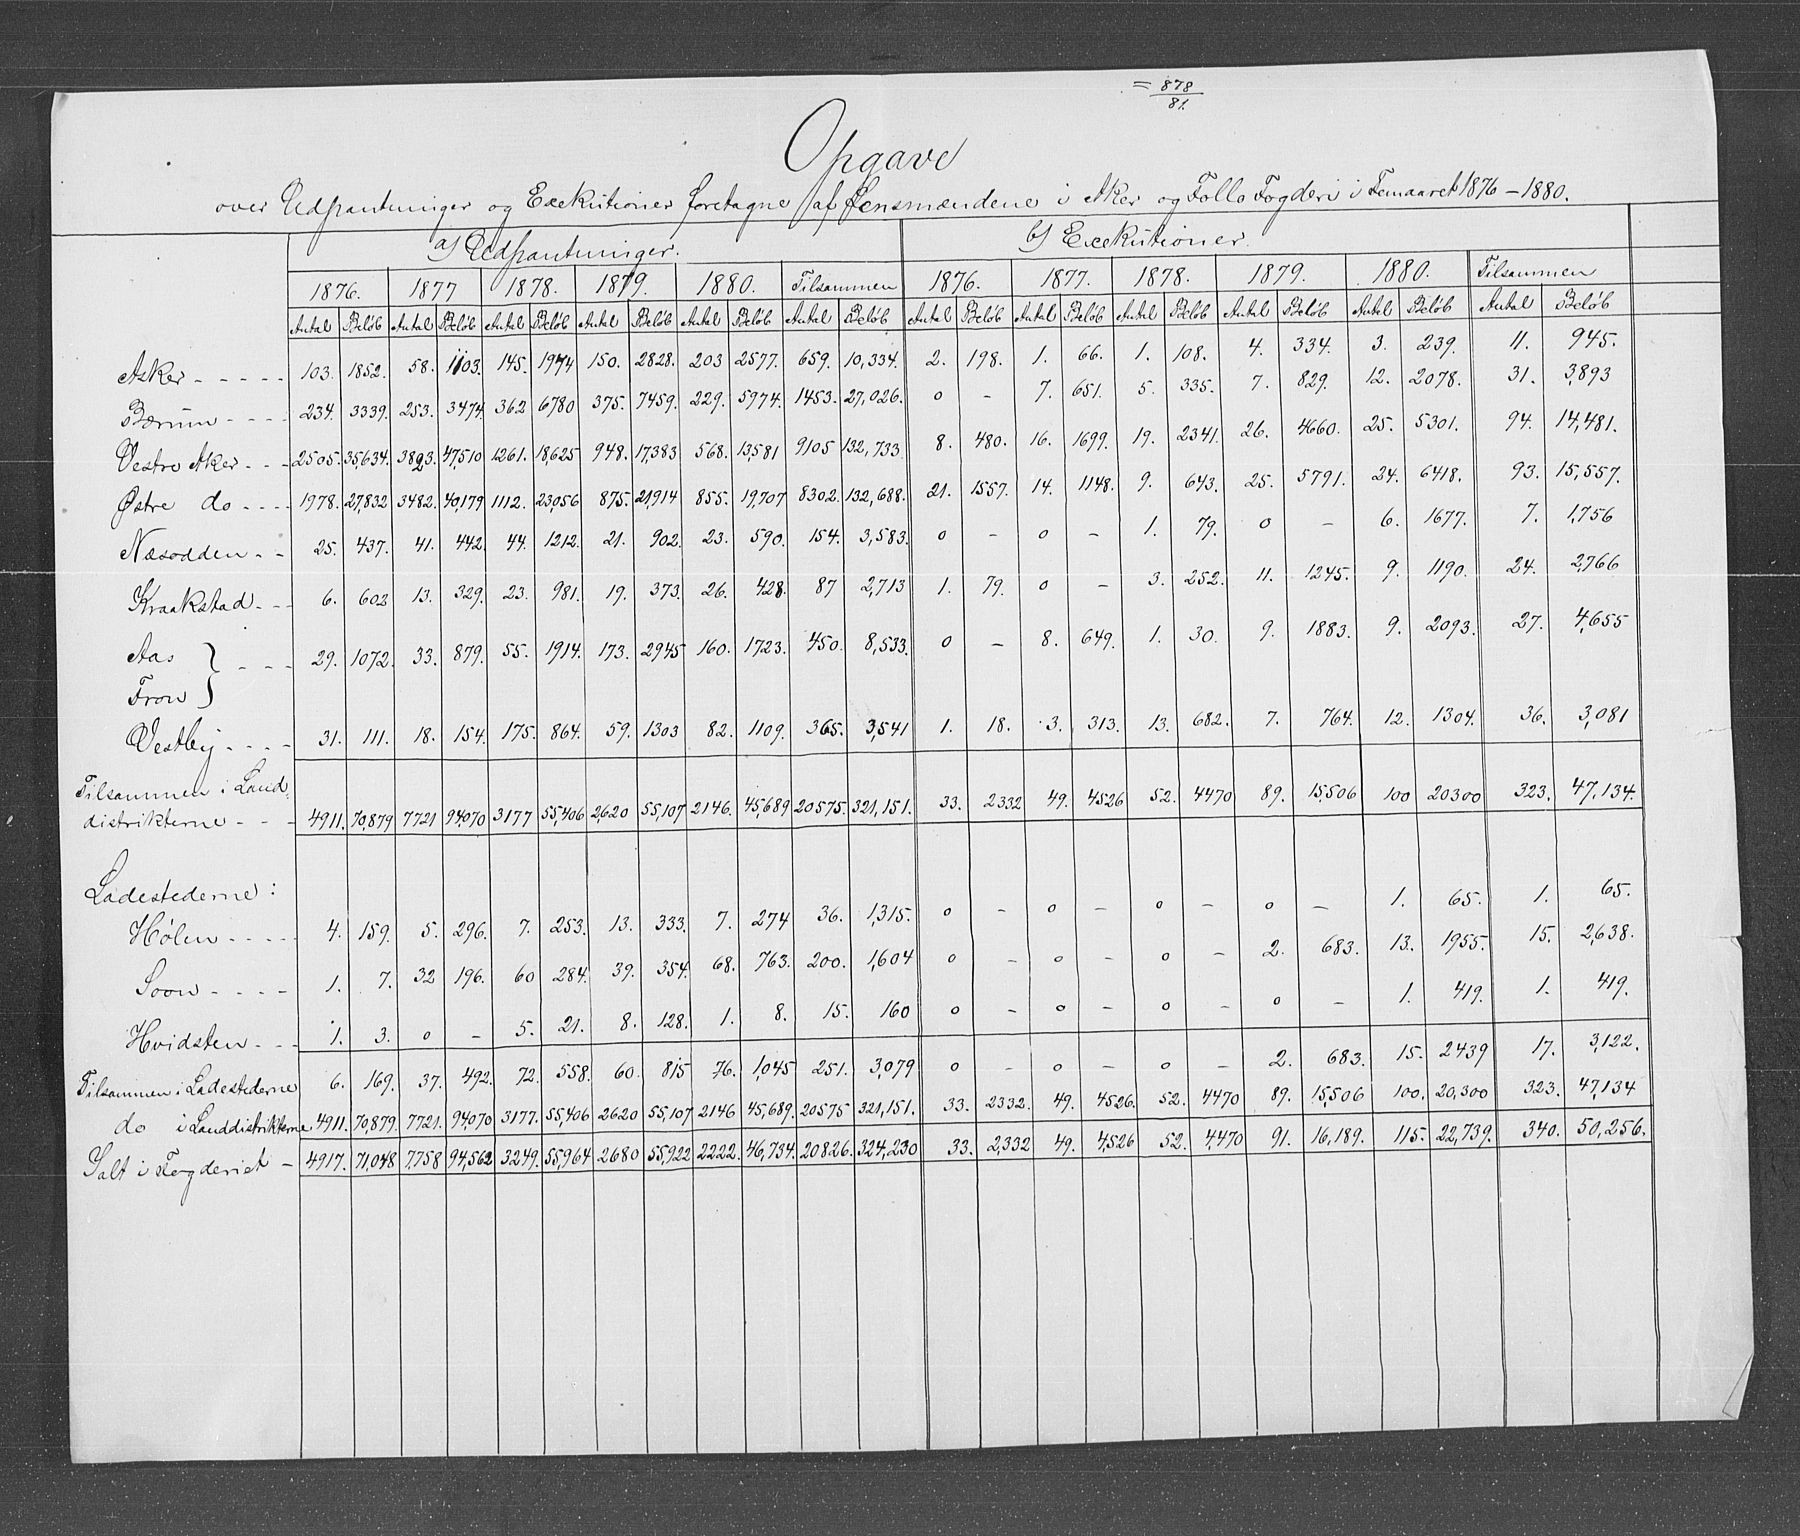 = 878
81.
Opgave
over Udpantninger og Exekutioner foretagne af Lensmændene i Aker og Follo Fogderi i Femaaret 1876 – 1880.
a) Udpantninger. b) Exekutioner.
1876. 1877 1878. 1879. 1880. Tilsammen 1876. 1877. 1878. 1879. 1880. Tilsammen
Antal Beløb Antal Beløb Antal Beløb Antal Beløb Antal Beløb Antal Beløb Antal Beløb Antal Beløb Antal Beløb Antal Beløb Antal Beløb Antal Beløb
Asker - - - - - 103. 1852. 58. 1103. 145. 1974 150. 2828. 203 2577. 659. 10,334. 2. 198. 1. 66. 1. 108. 4. 334. 3. 239. 11. 945.
Bærum - - - - 234. 3339. 253. 3474. 362 6780 375. 7459. 229. 5974. 1453. 27,026. 0 – 7. 651. 5. 335. 7. 829. 12. 2078. 31. 3,893
Vestre Aker - - - 2505. 35,634. 3823. 47,510 1261. 18,625 948. 17,383 568. 13,581 9105 132,733 8. 480. 16. 1699. 19. 2341. 26. 4660. 25. 5301. 94. 14,481.
Østre do - - - - 1978. 27,832 3482. 40,179 1112. 23,056 875. 21,914 855. 19,707 8302. 132,688. 21. 1557. 14. 1148. 9. 643. 25. 5791. 24. 6418. 93. 15,557.
Næsodden - - 25. 437. 41. 442. 44. 1212. 21. 902. 23. 590. 154. 3,583. 0 – 0 – 1. 79. 0 – 6. 1677. 7. 1,756
Kraakstad - - - 6. 602 13. 329. 23. 981. 19. 373. 26. 428. 87 2,713 1. 79. 0 – 3. 252. 11. 1245. 9. 1190. 24. 2,766
Aas } - - - 29. 1072. 33. 879. 55. 1914. 173. 2945 160. 1723. 450. 8,533. 0 – 8. 649. 1. 30. 9. 1883. 9. 2093. 27. 4,655
Fron }
Vestby - - - - 31. 111. 18. 154. 175. 864. 59. 1303 82. 1109. 365. 3,541 1. 18. 3. 313. 13. 682. 7. 764. 12. 1304. 36. 3,081
Tilsammen i Land-
distrikterne - - - 4911. 70,879 7721 94,070 3177 55,406 2,620 55,107 2146. 45,689 20575. 321,151. 33. 2332 49. 4526 52. 4470 89. 15,506 100 20300 323. 47,134.
Ladestederne:
Hølen - - - - - 4. 159. 5. 296. 7. 253. 13. 333. 7. 274 36. 1,315. 0 – 0 – 0 – 0 – 1. 65. 1. 65.
Soon - - - - 1. 7. 32 196. 60 284. 39. 354. 68. 763. 200. 1,604 0 – 0 – 0 – 2. 683. 13. 1955. 15. 2,638.
Hvidsten - - - 1. 3. 0 – 5. 21. 8. 128. 1. 8. 15. 160 0 – 0 – 0 – 0 – 1. 419. 1. 419.
Tilsammen i Ladestederne 6. 169. 37. 492. 72. 558. 60. 815 76. 1,045 251. 3,079 0 – 0 – 0 – 2. 683. 15. 2439 17. 3,122.
do i Landdistrikterne 4911. 70,879. 7721. 94,070 3177. 55,406 2620 55,107 2146 45,689. 20575 321,151. 33. 2332. 49. 4526. 52. 4470 89. 15,506 100. 20,300 323. 47,134
Ialt i Fogderiet – 4917. 71,048 7,758 94,562 3249. 55,964 2680 55,922 2222. 46,734. 20826. 324,230 33. 2,332 49. 4,526 52. 4,470 91. 16,189. 115. 22,739. 340. 50,256.